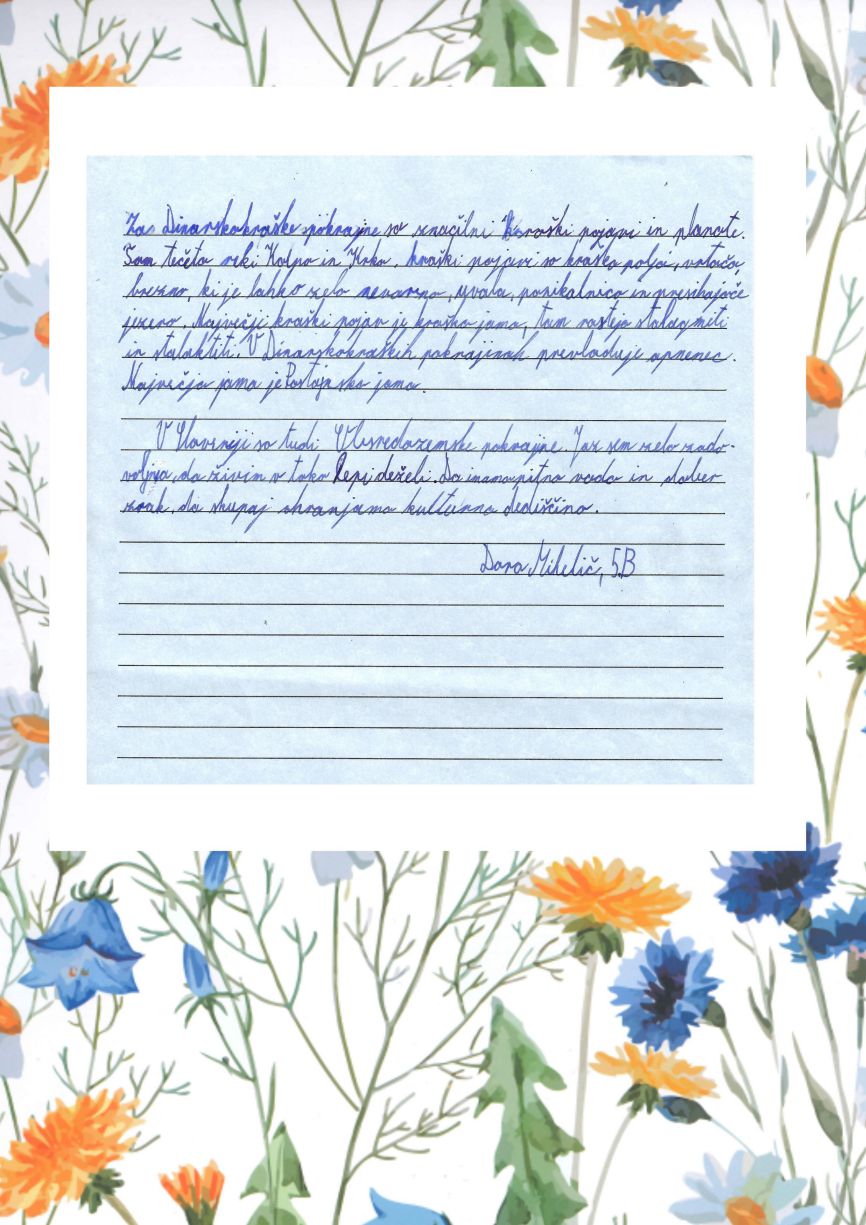 Za Dinarskokraške pokrajne so značilni kraški pojavi in planote.
Tam tečeta reki Kolpa in Krka, kraški pojavi so kraško polje, vrtača,
brezno, ki je lahko zelo nevarno, uvala, ponikalnica in presihajoče
jezero. Največji kraški pojav je kraška jama, tam rastejo stalagmiti
in stalaktiti. V Dinarskokraških pokrajinah prevladuje apnenec.
Največja jama je Postojnska jama.
V Sloveniji so tudi Obsredozemske pokrajne. Jaz sem zelo zado-
voljna, da živim v tako lepi deželi. Da imamo pitno vodo in dober
zrak, da skupaj ohranjamo kulturno dediščino.
Dora Mihelič, 5.B